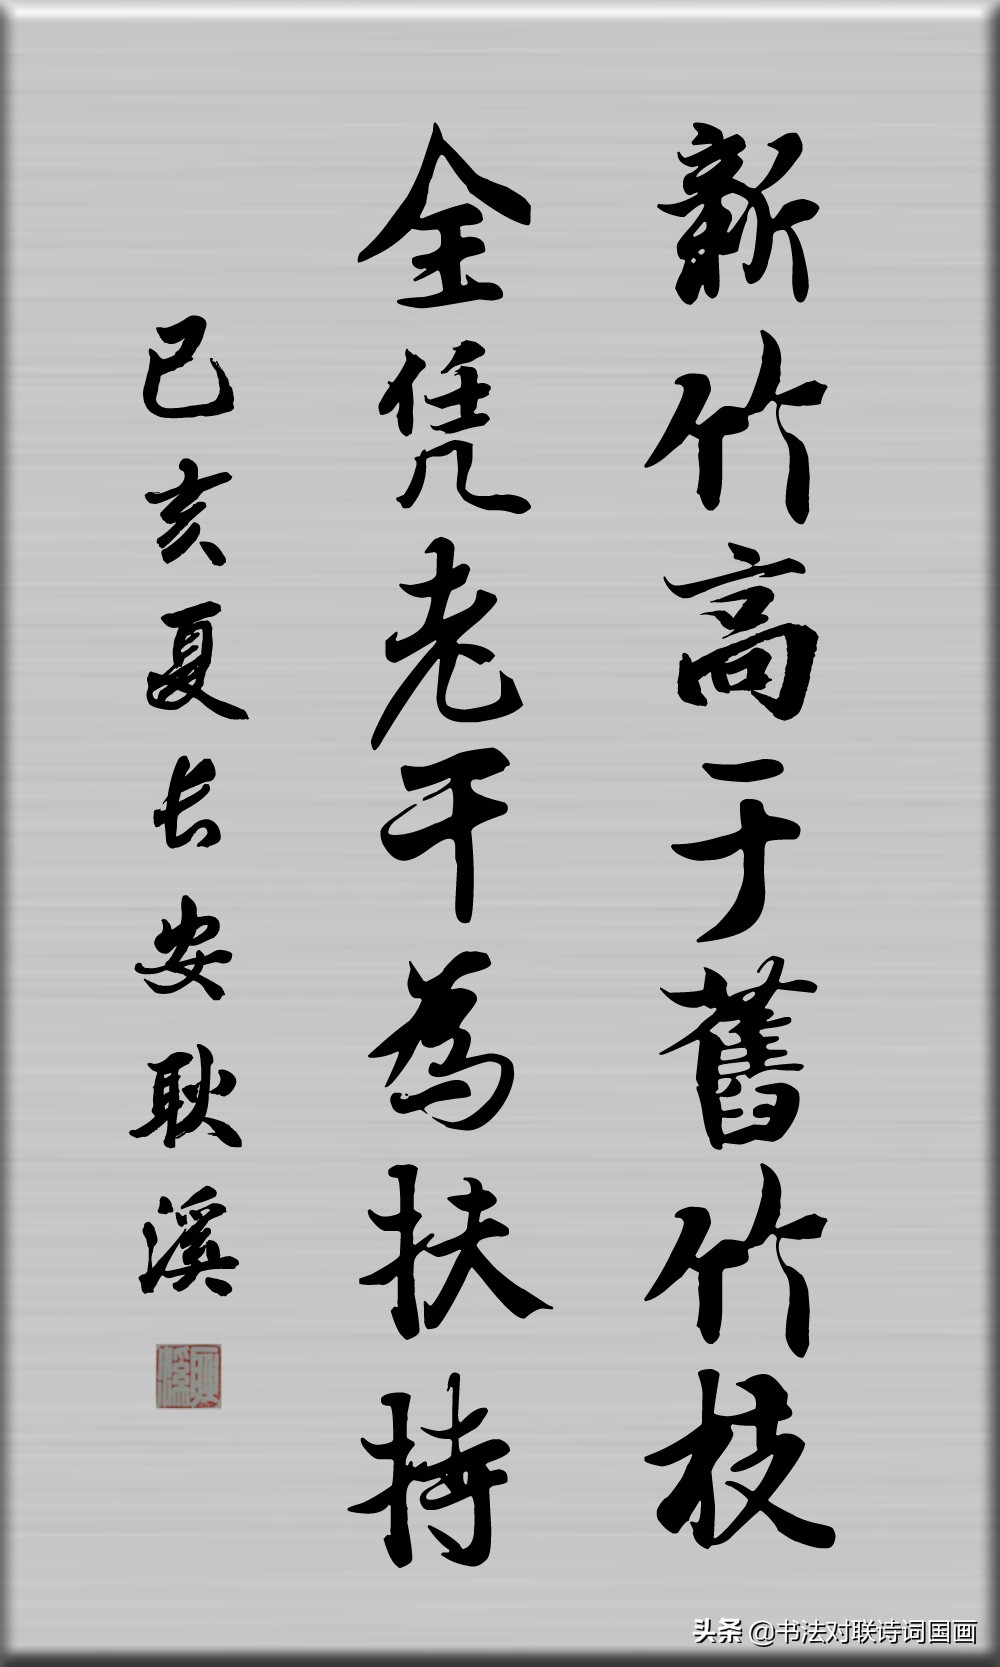 新竹高于舊竹枝
全凭老干為扶持
己亥夏长安耿溪
耿溪
头条 @书法对联诗词国画